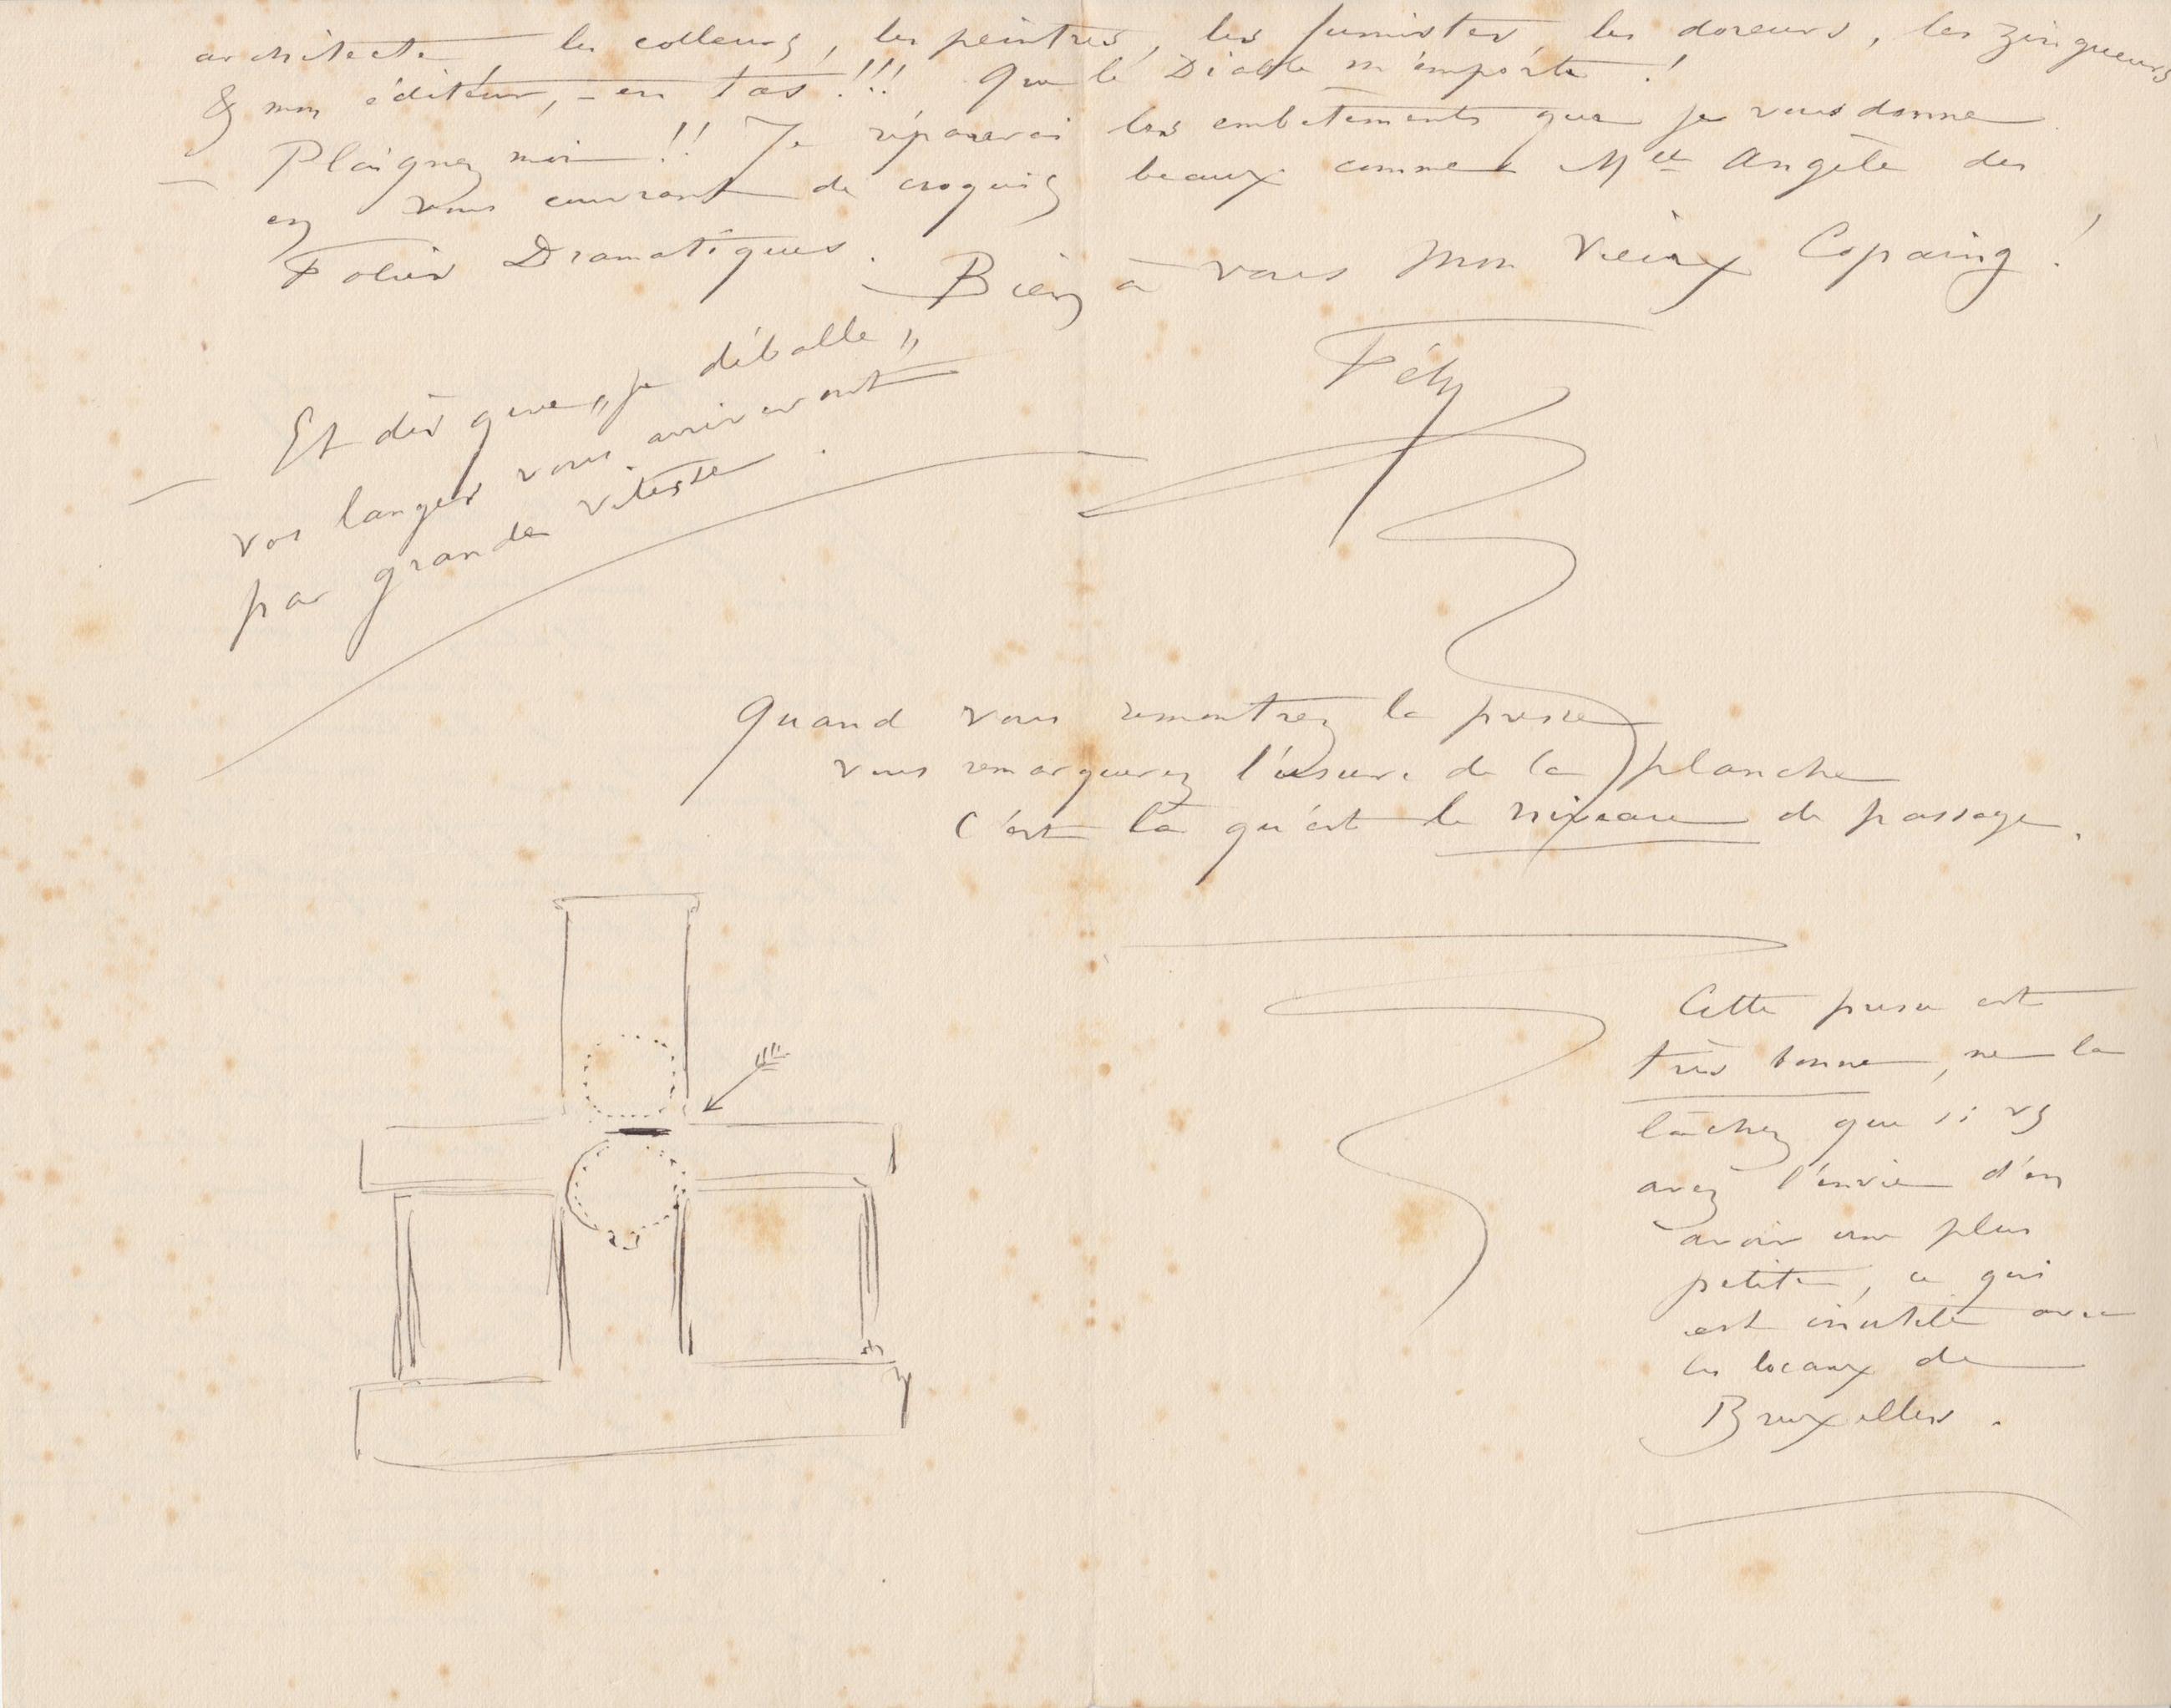 architecte, les colleurs, les peintres, les fumistes, les doreurs, les zingueurs
& mon éditeur, – en tas !!! Que le Diable m'emporte !
Plaignez moi !! Je réparerai les embêtements que je vous donne
en vous couvrant de croquis beaux comme Mlle Angèle des
Folies Dramatiques.
Bien à vous mon vieux Copaing !
Fély
Et dès que „je déballe„
vos langes vous arriveront
par grande vitesse.
Quand vous remontrez la presse
vous remarquerez l'usure de la planche
C'est là qu'est le niveau de passage.
Cette presse est
très bonne, ne la
lâchez que si vs
avez l'envie d'en
avoir une plus
petite, ce qui
est inutile avec
les locaux de
Bruxelles.